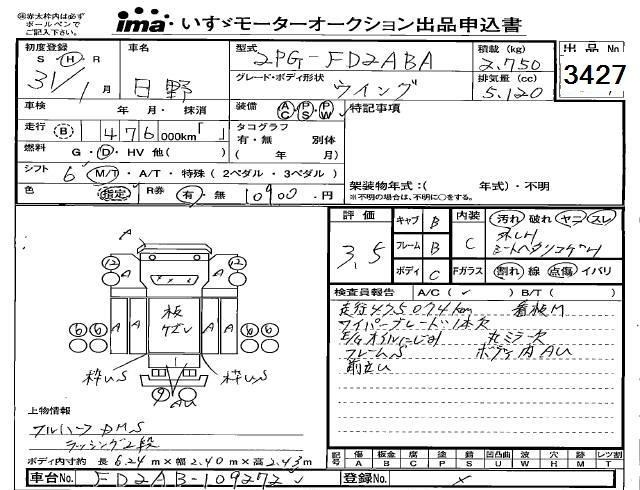 ㊟赤太枠内は必ず
ボールペンで
ご記入下さい。
ima いすゞモーターオークション出品申込書
初度登録 車名 型式 積載 (kg) 出品No
S・H・R 31/1月 日野 2PG-FD2ABA 2.750 3427
グレード・ボディ形状 ウイング 排気量 (cc) 5.120
車検 年 月・抹消 装備 AC PS PW 特記事項
走行 (B) 476 000km「 」 タコグラフ
有・無 別体
燃料 G・D・HV 他( ) ( 年 月)
シフト 6 M/T・A/T・特殊(2ペダル・3ペダル) 架装物年式:( 年式)・不明
※不明の場合は、不明に○をする。
色 指定 R券 有・無 10900円
評価 3.5 キャブ B 内装 C 汚れ 破れ ヤニ スレ
フレーム B
シートヘタリコゲ
ボディ C Fガラス 割れ 線 点傷 イバリ
検査員報告 A/C(✓) B/T( )
走行475074km 看板M
ワイパーブレード1本欠
E/Gオイルにじみ 丸ミラー欠
フレームS ボディ内AU
A
12 12
A A
板
ケビレ
A A A A
6 6 6 6
枠US 枠US
9 AU
上物情報
フルハーフ DMS
ラッシング2段
ボディ内寸約 長 6.24 m×幅 2.40 m×高 2.43 m
記号 傷A 板金B 腐C 塗P 錆S 凹凸曲U 波W 穴H 跡M レンズ割T
車台No. FD2AB-109272 登録No. ×